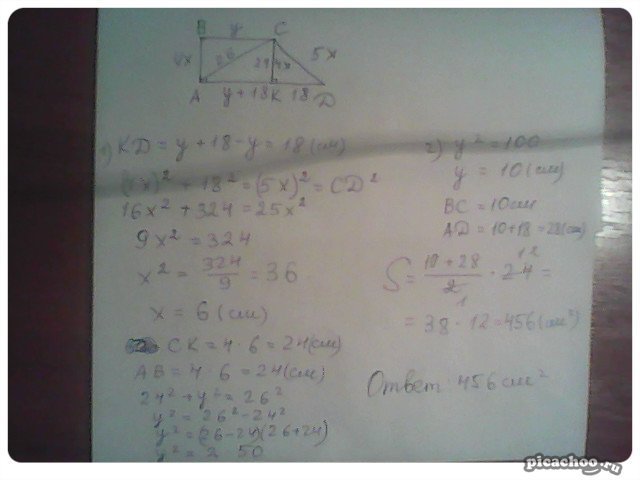 B y C
4x 26 24 4x 5x
A y+18 K 18 D
1) KD = y + 18 - y = 18 (см)
(4x)² + 18² = (5x)² = CD²
16x² + 324 = 25x²
9x² = 324
x² = 324/9 = 36
x = 6 (см)
CK = 4 · 6 = 24 (см)
AB = 4 · 6 = 24 (см)
24² + y² = 26²
y² = 26² - 24²
y² = (26-24)(26+24)
y² = 2 50
2) y² = 100
y = 10 (см)
BC = 10 см
AD = 10 + 18 = 28 (см)
S = (10 + 28)/2 · 24 =
12
1
= 38 · 12 = 456 (см²)
Ответ: 456 см²
picachoo.ru